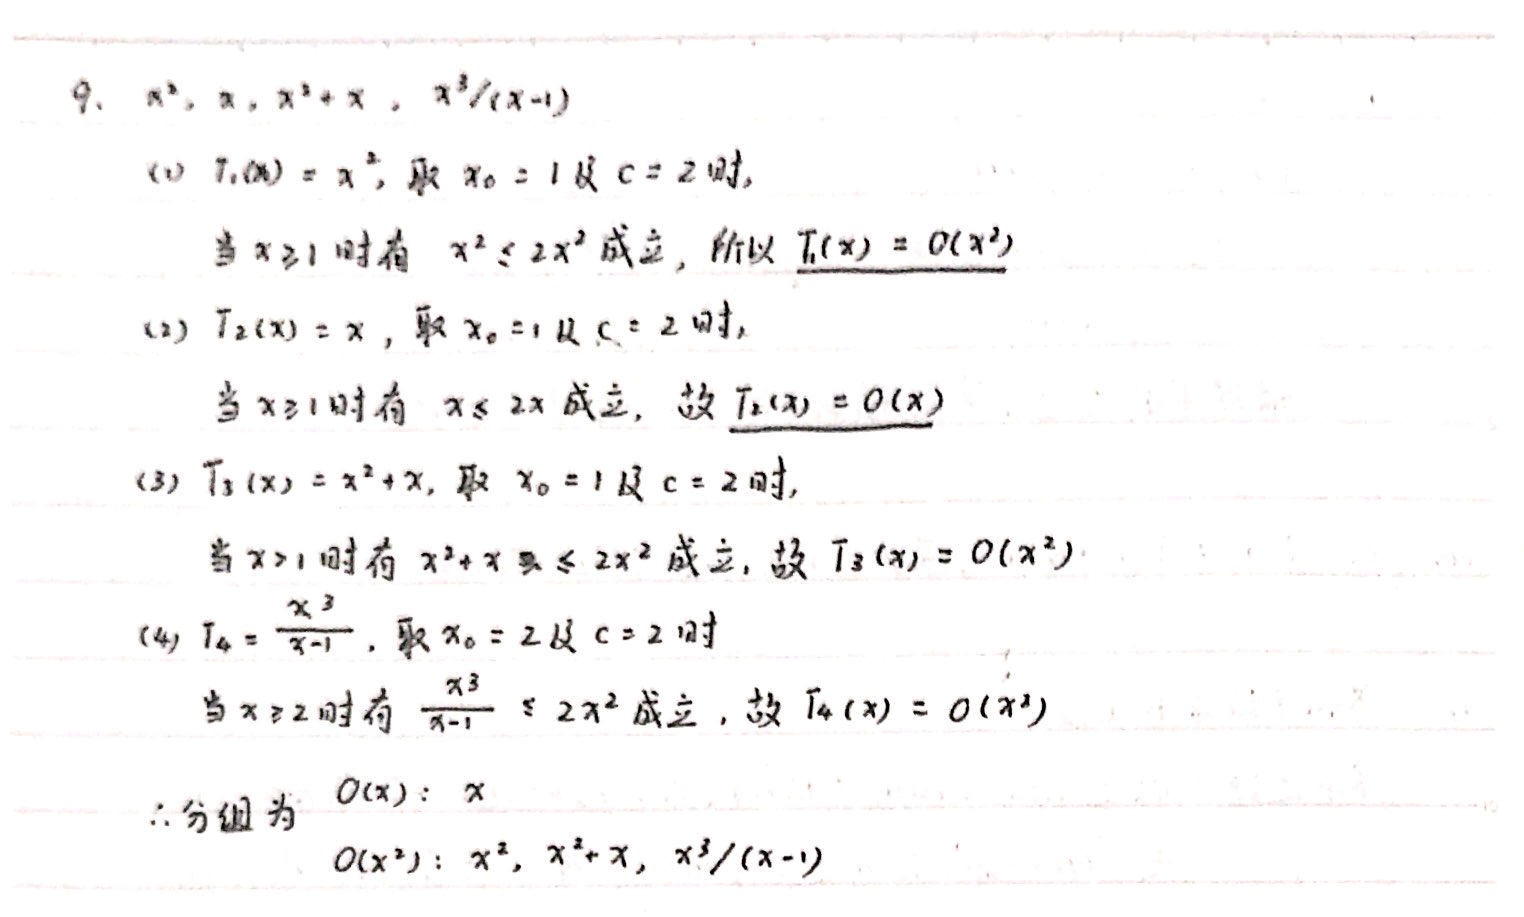 9、 x², x, x²+x, x³/(x-1)
(1) T₁(x) = x², 取 x₀ = 1 及 c = 2 时,
当 x≥1 时有 x² ≤ 2x² 成立, 所以 T₁(x) = O(x²)
(2) T₂(x) = x, 取 x₀ = 1 及 c = 2 时,
当 x≥1 时有 x ≤ 2x 成立, 故 T₂(x) = O(x)
(3) T₃(x) = x²+x, 取 x₀ = 1 及 c = 2 时,
当 x>1 时有 x²+x ≤ 2x² 成立, 故 T₃(x) = O(x²)
(4) T₄ = x³/(x-1), 取 x₀ = 2 及 c = 2 时
当 x≥2 时有 x³/(x-1) ≤ 2x² 成立, 故 T₄(x) = O(x²)
∴ 分组为 O(x): x
O(x²): x², x²+x, x³/(x-1)